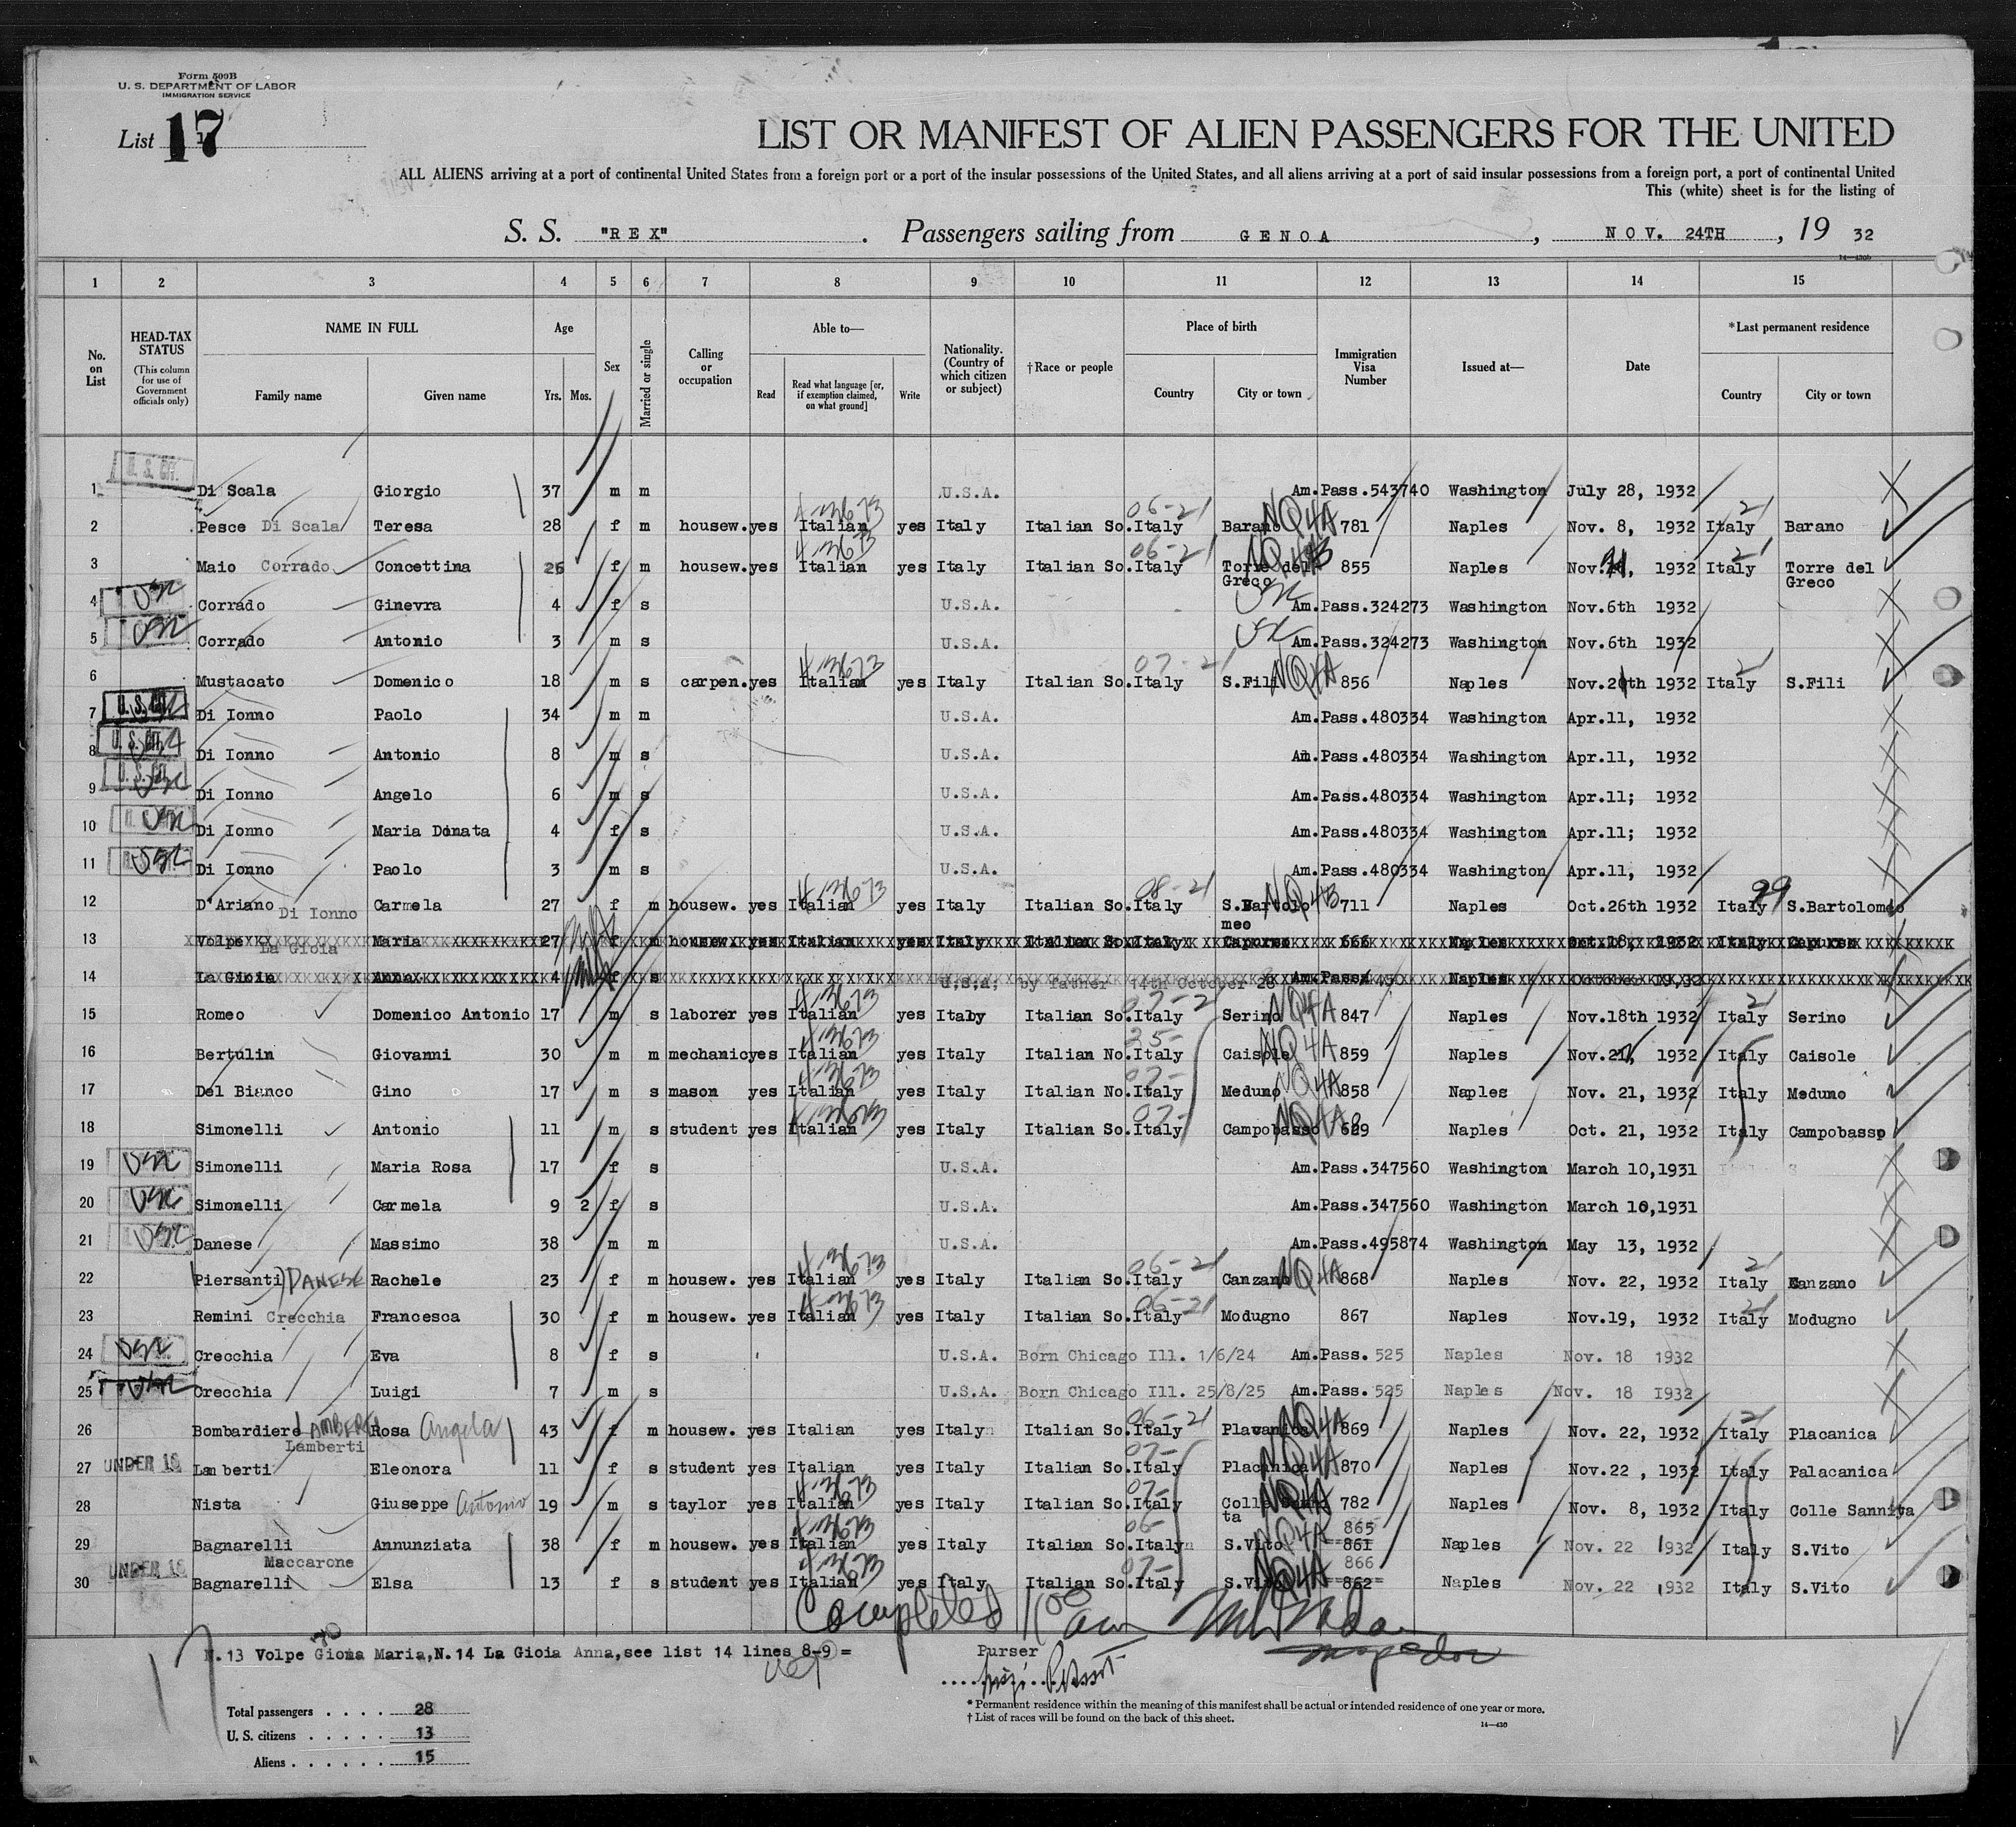 Form 500B
U. S. DEPARTMENT OF LABOR
IMMIGRATION SERVICE
List 17
LIST OR MANIFEST OF ALIEN PASSENGERS FOR THE UNITED
ALL ALIENS arriving at a port of continental United States from a foreign port or a port of the insular possessions of the United States, and all aliens arriving at a port of said insular possessions from a foreign port, a port of continental United
This (white) sheet is for the listing of
S. S. "REX" . Passengers sailing from GENOA , NOV. 24TH , 19 32
14—430b
1 2 3 4 5 6 7 8 9 10 11 12 13 14 15
No. on List HEAD-TAX STATUS (This column for use of Government officials only) NAME IN FULL Family name Given name Age Yrs. Mos. Sex Married or single Calling or occupation Able to— Read Read what language [or, if exemption claimed, on what ground] Write Nationality. (Country of which citizen or subject) †Race or people Place of birth Country City or town Immigration Visa Number Issued at— Date *Last permanent residence Country City or town
1 U. S. CIT. Di Scala Giorgio 37 m m U.S.A. Am.Pass.543740 Washington July 28, 1932
2 Pesce Di Scala Teresa 28 f m housew. yes Italian 4-3673 yes Italy Italian So. Italy 06-21 Barano NQ4A 781 Naples Nov. 8, 1932 Italy 21 Barano
3 Maio Corrado Concettina 26 f m housew. yes Italian 4-3673 yes Italy Italian So. Italy 06-21 Torre del Greco 855 Naples Nov. 1932 Italy 21 Torre del Greco
4 USC Corrado Ginevra 4 f s U.S.A. USC Am.Pass.324273 Washington Nov.6th 1932
5 USC Corrado Antonio 3 m s U.S.A. USC Am.Pass.324273 Washington Nov.6th 1932
6 Mustacato Domenico 18 m s carpen. yes Italian 4-3673 yes Italy Italian So. Italy 07-21 S.Fili NQ4A 856 Naples Nov. 1932 Italy 21 S.Fili
7 U. S. CIT. Di Ionno Paolo 34 m m U.S.A. Am.Pass.480334 Washington Apr.11, 1932
8 U. S. CIT. Di Ionno Antonio 8 m s U.S.A. Am.Pass.480334 Washington Apr.11, 1932
9 U. S. CIT. Di Ionno Angelo 6 m s U.S.A. Am.Pass.480334 Washington Apr.11; 1932
10 USC Di Ionno Maria Donata 4 f s U.S.A. Am.Pass.480334 Washington Apr.11; 1932
11 USC Di Ionno Paolo 3 m s U.S.A. Am.Pass.480334 Washington Apr.11, 1932
12 D'Ariano Di Ionno Carmela 27 f m housew. yes Italian 4-3673 yes Italy Italian So. Italy 08-21 S.Bartolo meo NQ4B 711 Naples Oct.26th 1932 Italy 29 S.Bartolomeo
13 Volpe La Gioia Maria 27 f m housew. yes Italian yes Italy Italian So. Italy Capurso 666 Naples Oct.18, 1932 Italy Capurso
14 La Gioia Anna 4 f s U.S.A. by father 14th October 28 Am.Pass. Naples October 19,32
15 Romeo Domenico Antonio 17 m s laborer yes Italian 4-3673 yes Italy Italian So. Italy 07-2 Serino NQ4A 847 Naples Nov.18th 1932 Italy 21 Serino
16 Bertulin Giovanni 30 m m mechanic yes Italian 4-3673 yes Italy Italian No. Italy 25- Caisole NQ4A 859 Naples Nov.21, 1932 Italy Caisole
17 Del Bianco Gino 17 m s mason yes Italian 4-3673 yes Italy Italian No. Italy 07- Meduno NQ4A 858 Naples Nov. 21, 1932 Italy Meduno
18 Simonelli Antonio 11 m s student yes Italian 4-3673 yes Italy Italian So. Italy 07- Campobasso NQ4A Naples Oct. 21, 1932 Italy Campobasso
19 USC Simonelli Maria Rosa 17 f s U.S.A. Am.Pass.347560 Washington March 10,1931
20 USC Simonelli Carmela 9 2 f s U.S.A. Am.Pass.347560 Washington March 10,1931
21 USC Danese Massimo 38 m m U.S.A. Am.Pass.495874 Washington May 13, 1932
22 Piersanti DANESE Rachele 23 f m housew. yes Italian 4-3673 yes Italy Italian So. Italy 06-21 Canzano NQ4A 868 Naples Nov. 22, 1932 Italy 21 Canzano
23 Remini Crecchia Francesca 30 f m housew. yes Italian 4-3673 yes Italy Italian So. Italy 06-21 Modugno 867 Naples Nov.19, 1932 Italy 21 Modugno
24 USC Crecchia Eva 8 f s U.S.A. Born Chicago Ill. 1/6/24 Am.Pass. 525 Naples Nov. 18 1932
25 USC Crecchia Luigi 7 m s U.S.A. Born Chicago Ill. 25/8/25 Am.Pass. 525 Naples Nov. 18 1932
26 Bombardiere LAMBERTI Lamberti Rosa Angela 43 f m housew. yes Italian yes Italy Italian So. Italy 06-21 Placanica NQ4A 869 Naples Nov. 22, 1932 Italy 21 Placanica
27 UNDER 16 Lamberti Eleonora 11 f s student yes Italian yes Italy Italian So. Italy 07- Placanica NQ4A 870 Naples Nov.22 , 1932 Italy Palacanica
28 Nista Giuseppe Antonio 19 m s taylor yes Italian 4-3673 yes Italy Italian So. Italy 07- Colle Sanni ta NQ4A 782 Naples Nov. 8, 1932 Italy Colle Sannita
29 Bagnarelli Maccarone Annunziata 38 f m housew. yes Italian 4-3673 yes Italy Italian So. Italy 06- S.Vito NQ4A 865 861 Naples Nov. 22 1932 Italy S.Vito
30 UNDER 16 Bagnarelli Elsa 13 f s student yes Italian 4-3673 yes Italy Italian So. Italy 07- S.Vito NQ4A 866 862 Naples Nov. 22 1932 Italy S.Vito
Completed
N.13 Volpe Gioia Maria,N.14 La Gioia Anna,see list 14 lines 8-9 =
Purser
Total passengers . . . . 28
U. S. citizens . . . . . 13
Aliens . . . . . . 15
* Permanent residence within the meaning of this manifest shall be actual or intended residence of one year or more.
† List of races will be found on the back of this sheet.
14—430